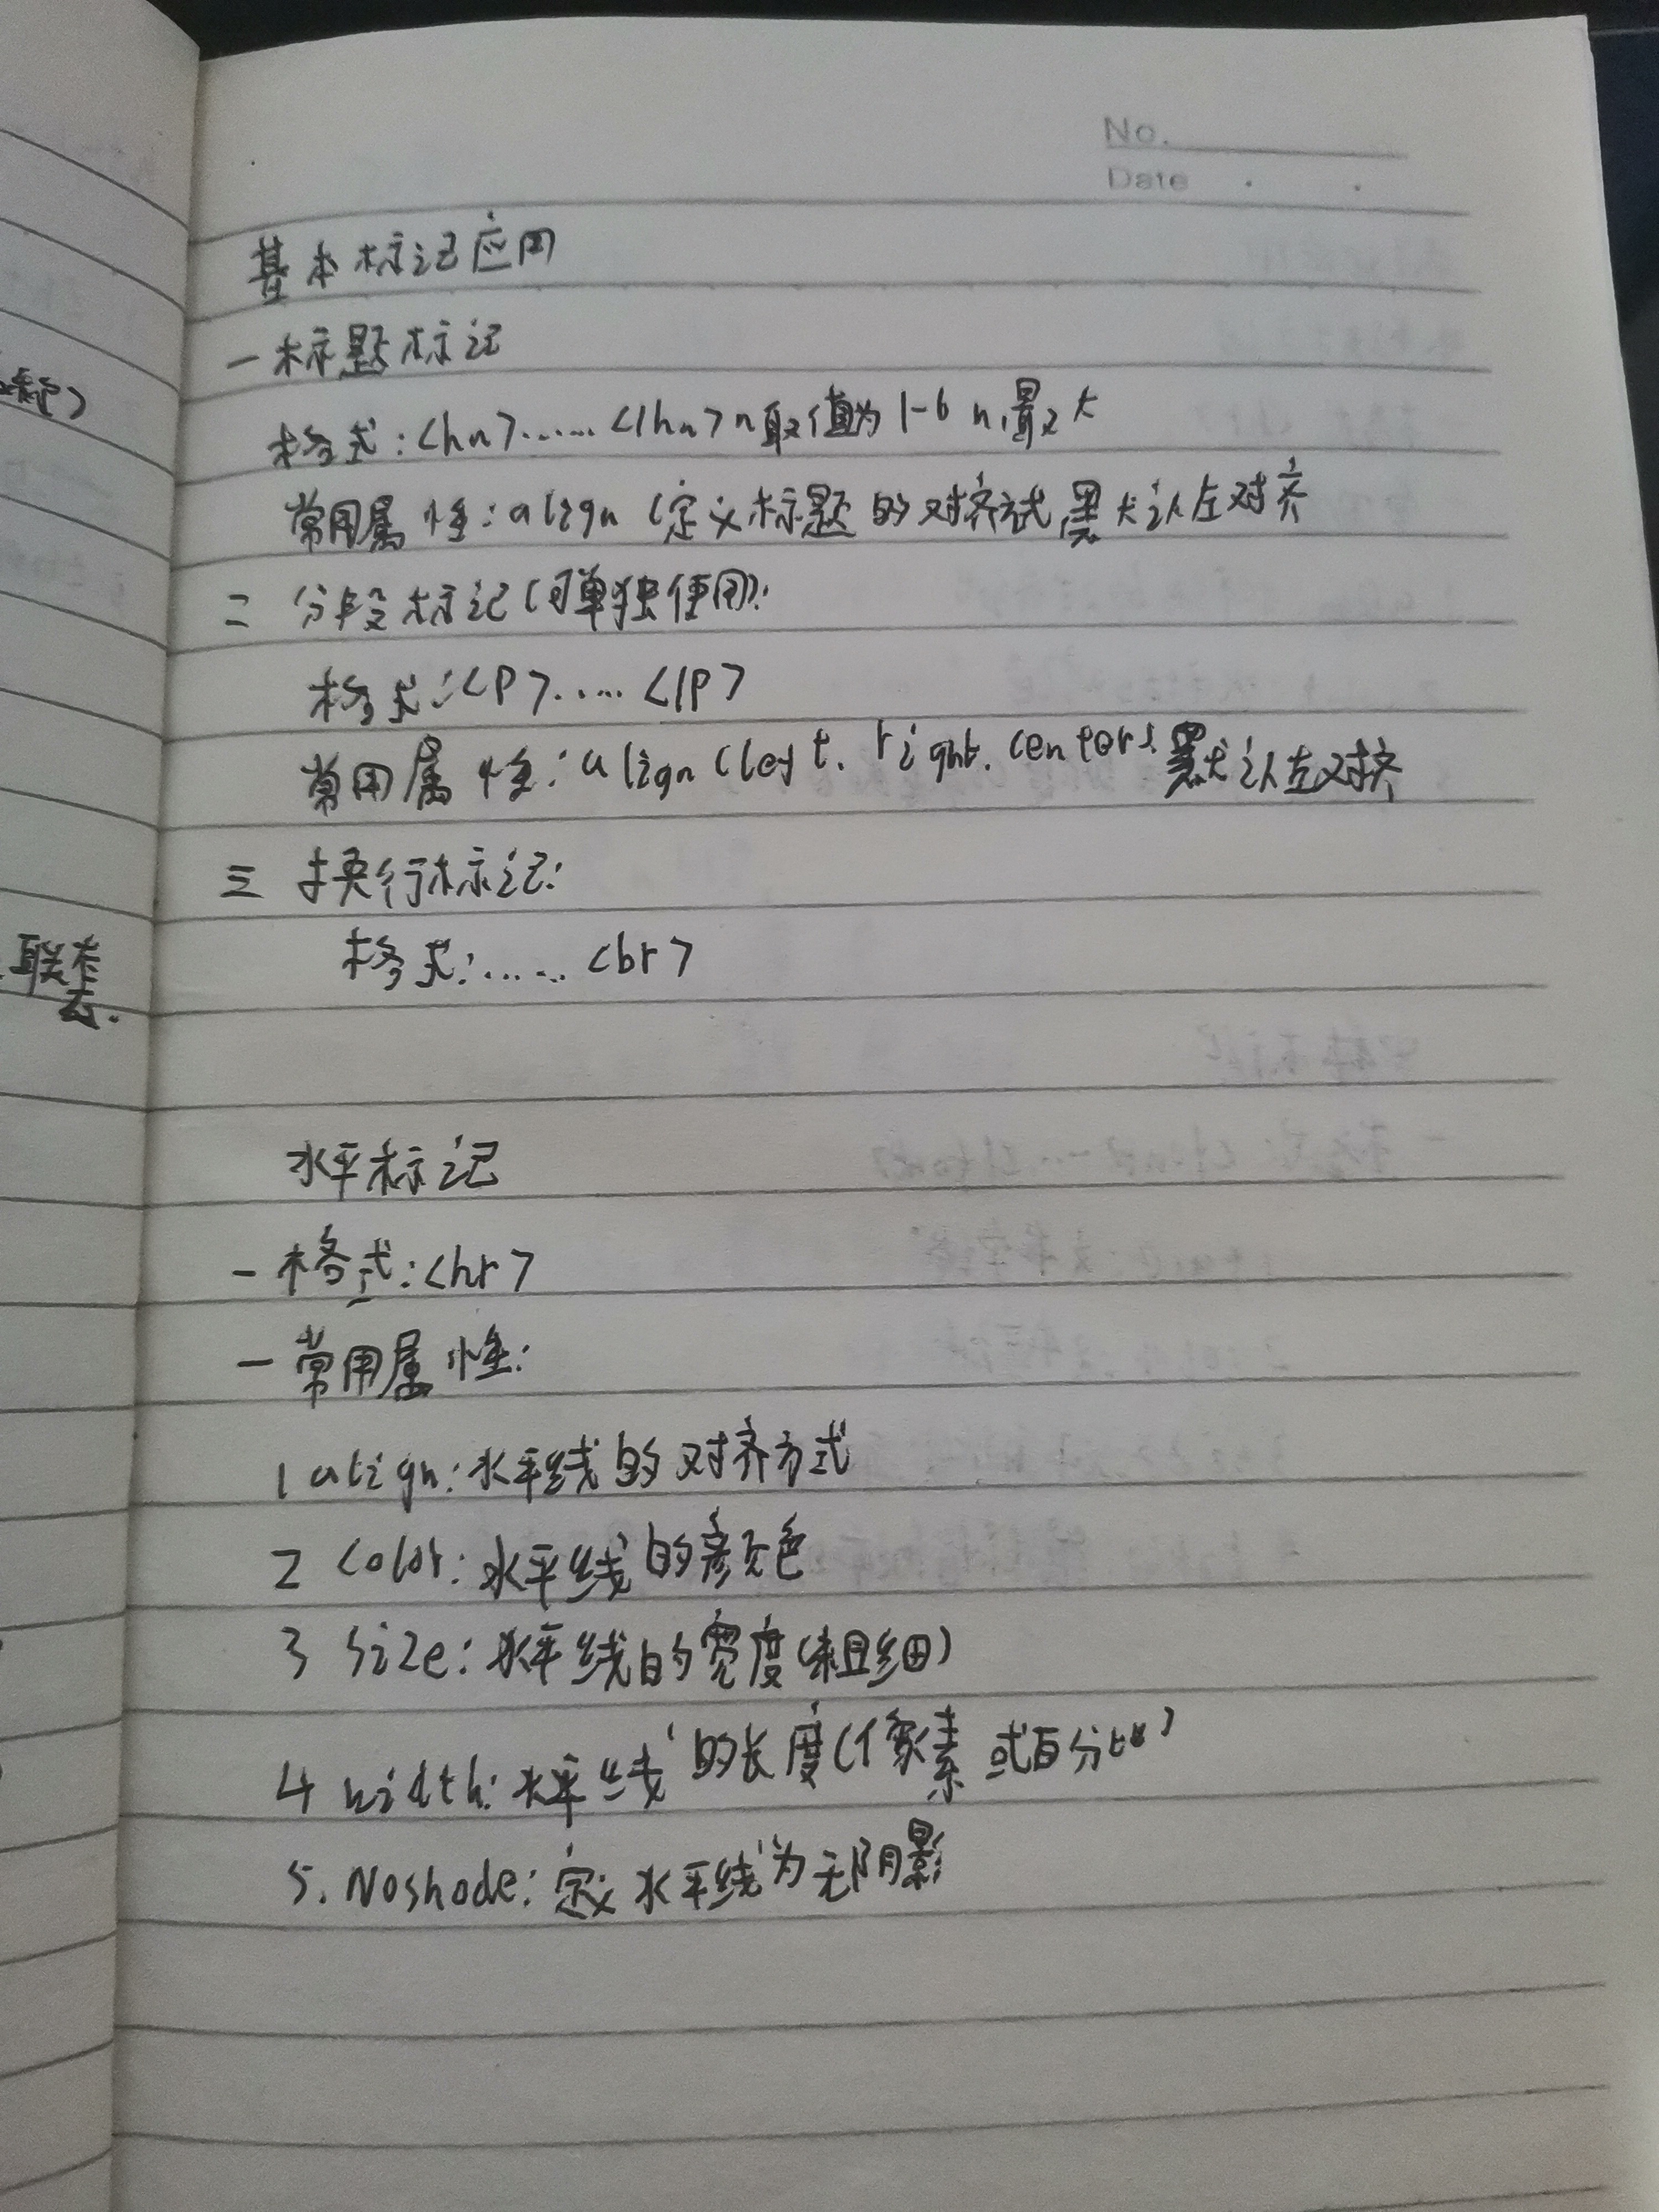 No.
Date
基本标记应用
一标题标记
格式:<hn>......</hn>n取值为1-6 n1最大
常用属性:align(定义标题的对齐方式 默认左对齐
二 分段标记(可单独使用):
格式:<P>.....</P>
常用属性:align(left. right. center). 默认左对齐
三 换行标记:
格式:......<br>
水平标记
一格式:<hr>
一常用属性:
1 align:水平线的对齐方式
2 Color:水平线的颜色
3 Size:水平线的宽度(粗细)
4 width:水平线的长度(像素 或百分比)
5. Noshode:定义水平线为无阴影
联套